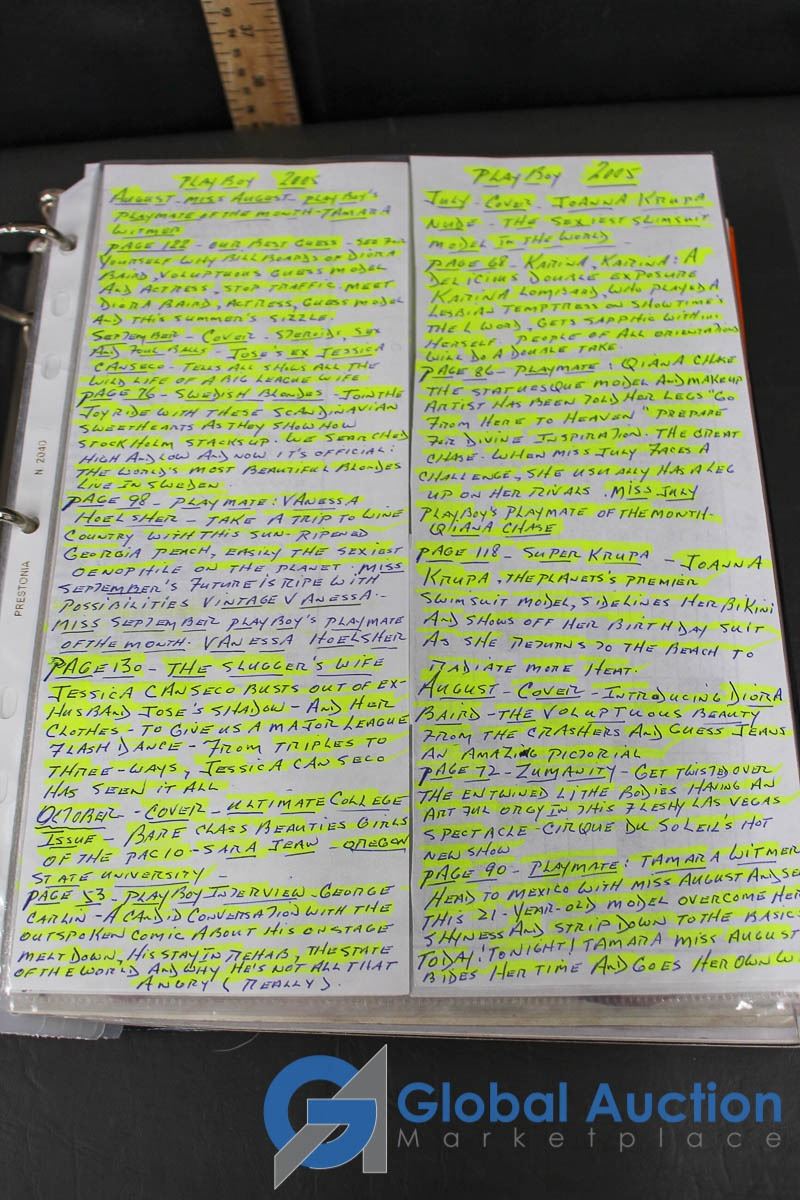 PLAYBOY 2005
AUGUST - MISS AUGUST PLAYBOY'S
PLAYMATE OF THE MONTH - TAMARA
WITMER
PAGE 122 - OUR BEST GUESS - SEE FOR
YOURSELF WHY BILLBOARDS OF DIORA
BAIRD, VOLUPTUOUS GUESS MODEL
AND ACTRESS, STOP TRAFFIC. MEET
DIORA BAIRD, ACTRESS, GUESS MODEL
AND THIS SUMMER'S SIZZLE.
SEPTEMBER - COVER - STEROIDS, SEX
AND FOUL BALLS - JOSE'S EX JESSICA
CANSECO - TELLS ALL SHOWS ALL THE
WILD LIFE OF A BIG LEAGUE WIFE
PAGE 76 - SWEDISH BLONDES - JOIN THE
JOYRIDE WITH THESE SCANDINAVIAN
SWEETHEARTS AS THEY SHOW HOW
STOCKHOLM STACKS UP. WE SEARCHED
HIGH AND LOW AND NOW IT'S OFFICIAL:
THE WORLD'S MOST BEAUTIFUL BLONDES
LIVE IN SWEDEN.
PAGE 98 - PLAYMATE: VANESSA
HOELSHER - TAKE A TRIP TO WINE
COUNTRY WITH THIS SUN-RIPENED
GEORGIA PEACH, EASILY THE SEXIEST
OENOPHILE ON THE PLANET. MISS
SEPTEMBER'S FUTURE IS RIPE WITH
POSSIBILITIES VINTAGE VANESSA.
MISS SEPTEMBER PLAYBOY'S PLAYMATE
OF THE MONTH. VANESSA HOELSHER
PAGE 130 - THE SLUGGER'S WIFE
JESSICA CANSECO BUSTS OUT OF EX-
HUSBAND JOSE'S SHADOW - AND HER
CLOTHES - TO GIVE US A MAJOR LEAGUE
FLASH DANCE - FROM TRIPLES TO
THREE-WAYS, JESSICA CANSECO
HAS SEEN IT ALL
OCTOBER - COVER - ULTIMATE COLLEGE
ISSUE - BARE CLASS BEAUTIES GIRLS
OF THE PAC 10 - SARA JEAN - OREGON
STATE UNIVERSITY -
PAGE 53 - PLAYBOY INTERVIEW - GEORGE
CARLIN - A CANDID CONVERSATION WITH THE
OUTSPOKEN COMIC ABOUT HIS ONSTAGE
MELTDOWN, HIS STAY IN REHAB, THE STATE
OF THE WORLD AND WHY HE'S NOT ALL THAT
ANGRY (REALLY).
PLAYBOY 2005
JULY - COVER - JOANNA KRUPA
NUDE - THE SEXIEST SWIMSUIT
MODEL IN THE WORLD -
PAGE 68 - KARINA, KARINA: A
DELICIOUS DOUBLE EXPOSURE
KARINA LOMBARD, WHO PLAYED A
LESBIAN TEMPTRESS ON SHOWTIME'S
THE L WORD, GETS SAPPHIC WITH
HERSELF. PEOPLE OF ALL ORIENTATION
WILL DO A DOUBLE TAKE.
PAGE 86 - PLAYMATE: QIANA CHASE
THE STATUESQUE MODEL AND MAKEUP
ARTIST HAS BEEN TOLD HER LEGS "GO
FROM HERE TO HEAVEN" PREPARE
FOR DIVINE INSPIRATION. THE GREAT
CHASE. WHEN MISS JULY FACES A
CHALLENGE, SHE USUALLY HAS A LEG
UP ON HER RIVALS. MISS JULY
PLAYBOY'S PLAYMATE OF THE MONTH -
QIANA CHASE
PAGE 118 - SUPER KRUPA - JOANNA
KRUPA, THE PLANETS'S PREMIER
SWIMSUIT MODEL, SIDELINES HER BIKINI
AND SHOWS OFF HER BIRTHDAY SUIT
AS SHE RETURNS TO THE BEACH TO
RADIATE MORE HEAT.
AUGUST - COVER - INTRODUCING DIORA
BAIRD - THE VOLUPTUOUS BEAUTY
FROM THE CRASHERS AND GUESS JEANS
AN AMAZING PICTORIAL
PAGE 72 - ZUMANITY - GET TWISTED OVER
THE ENTWINED LITHE BODIES HAVING AN
ARTFUL ORGY IN THIS FLESHY LAS VEGAS
SPECTACLE - CIRQUE DU SOLEIL'S HOT
NEW SHOW
PAGE 90 - PLAYMATE: TAMARA WITMER
HEAD TO MEXICO WITH MISS AUGUST AND SE
THIS 21-YEAR-OLD MODEL OVERCOME HER
SHYNESS AND STRIP DOWN TO THE BASICS
TODAY! TONIGHT! TAMARA MISS AUGUST
BIDES HER TIME AND GOES HER OWN W
PRESTONIA
N. 2040
37
38
GA Global Auction
Marketplace